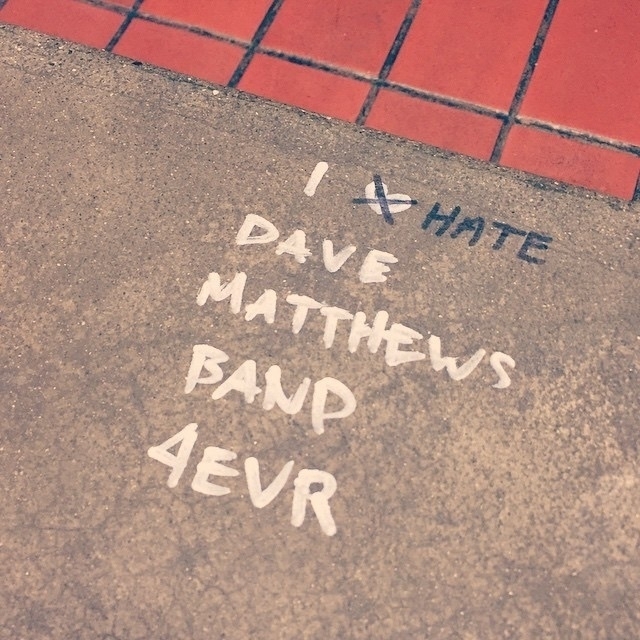 I HATE
DAVE
MATTHEWS
BAND
4EVR